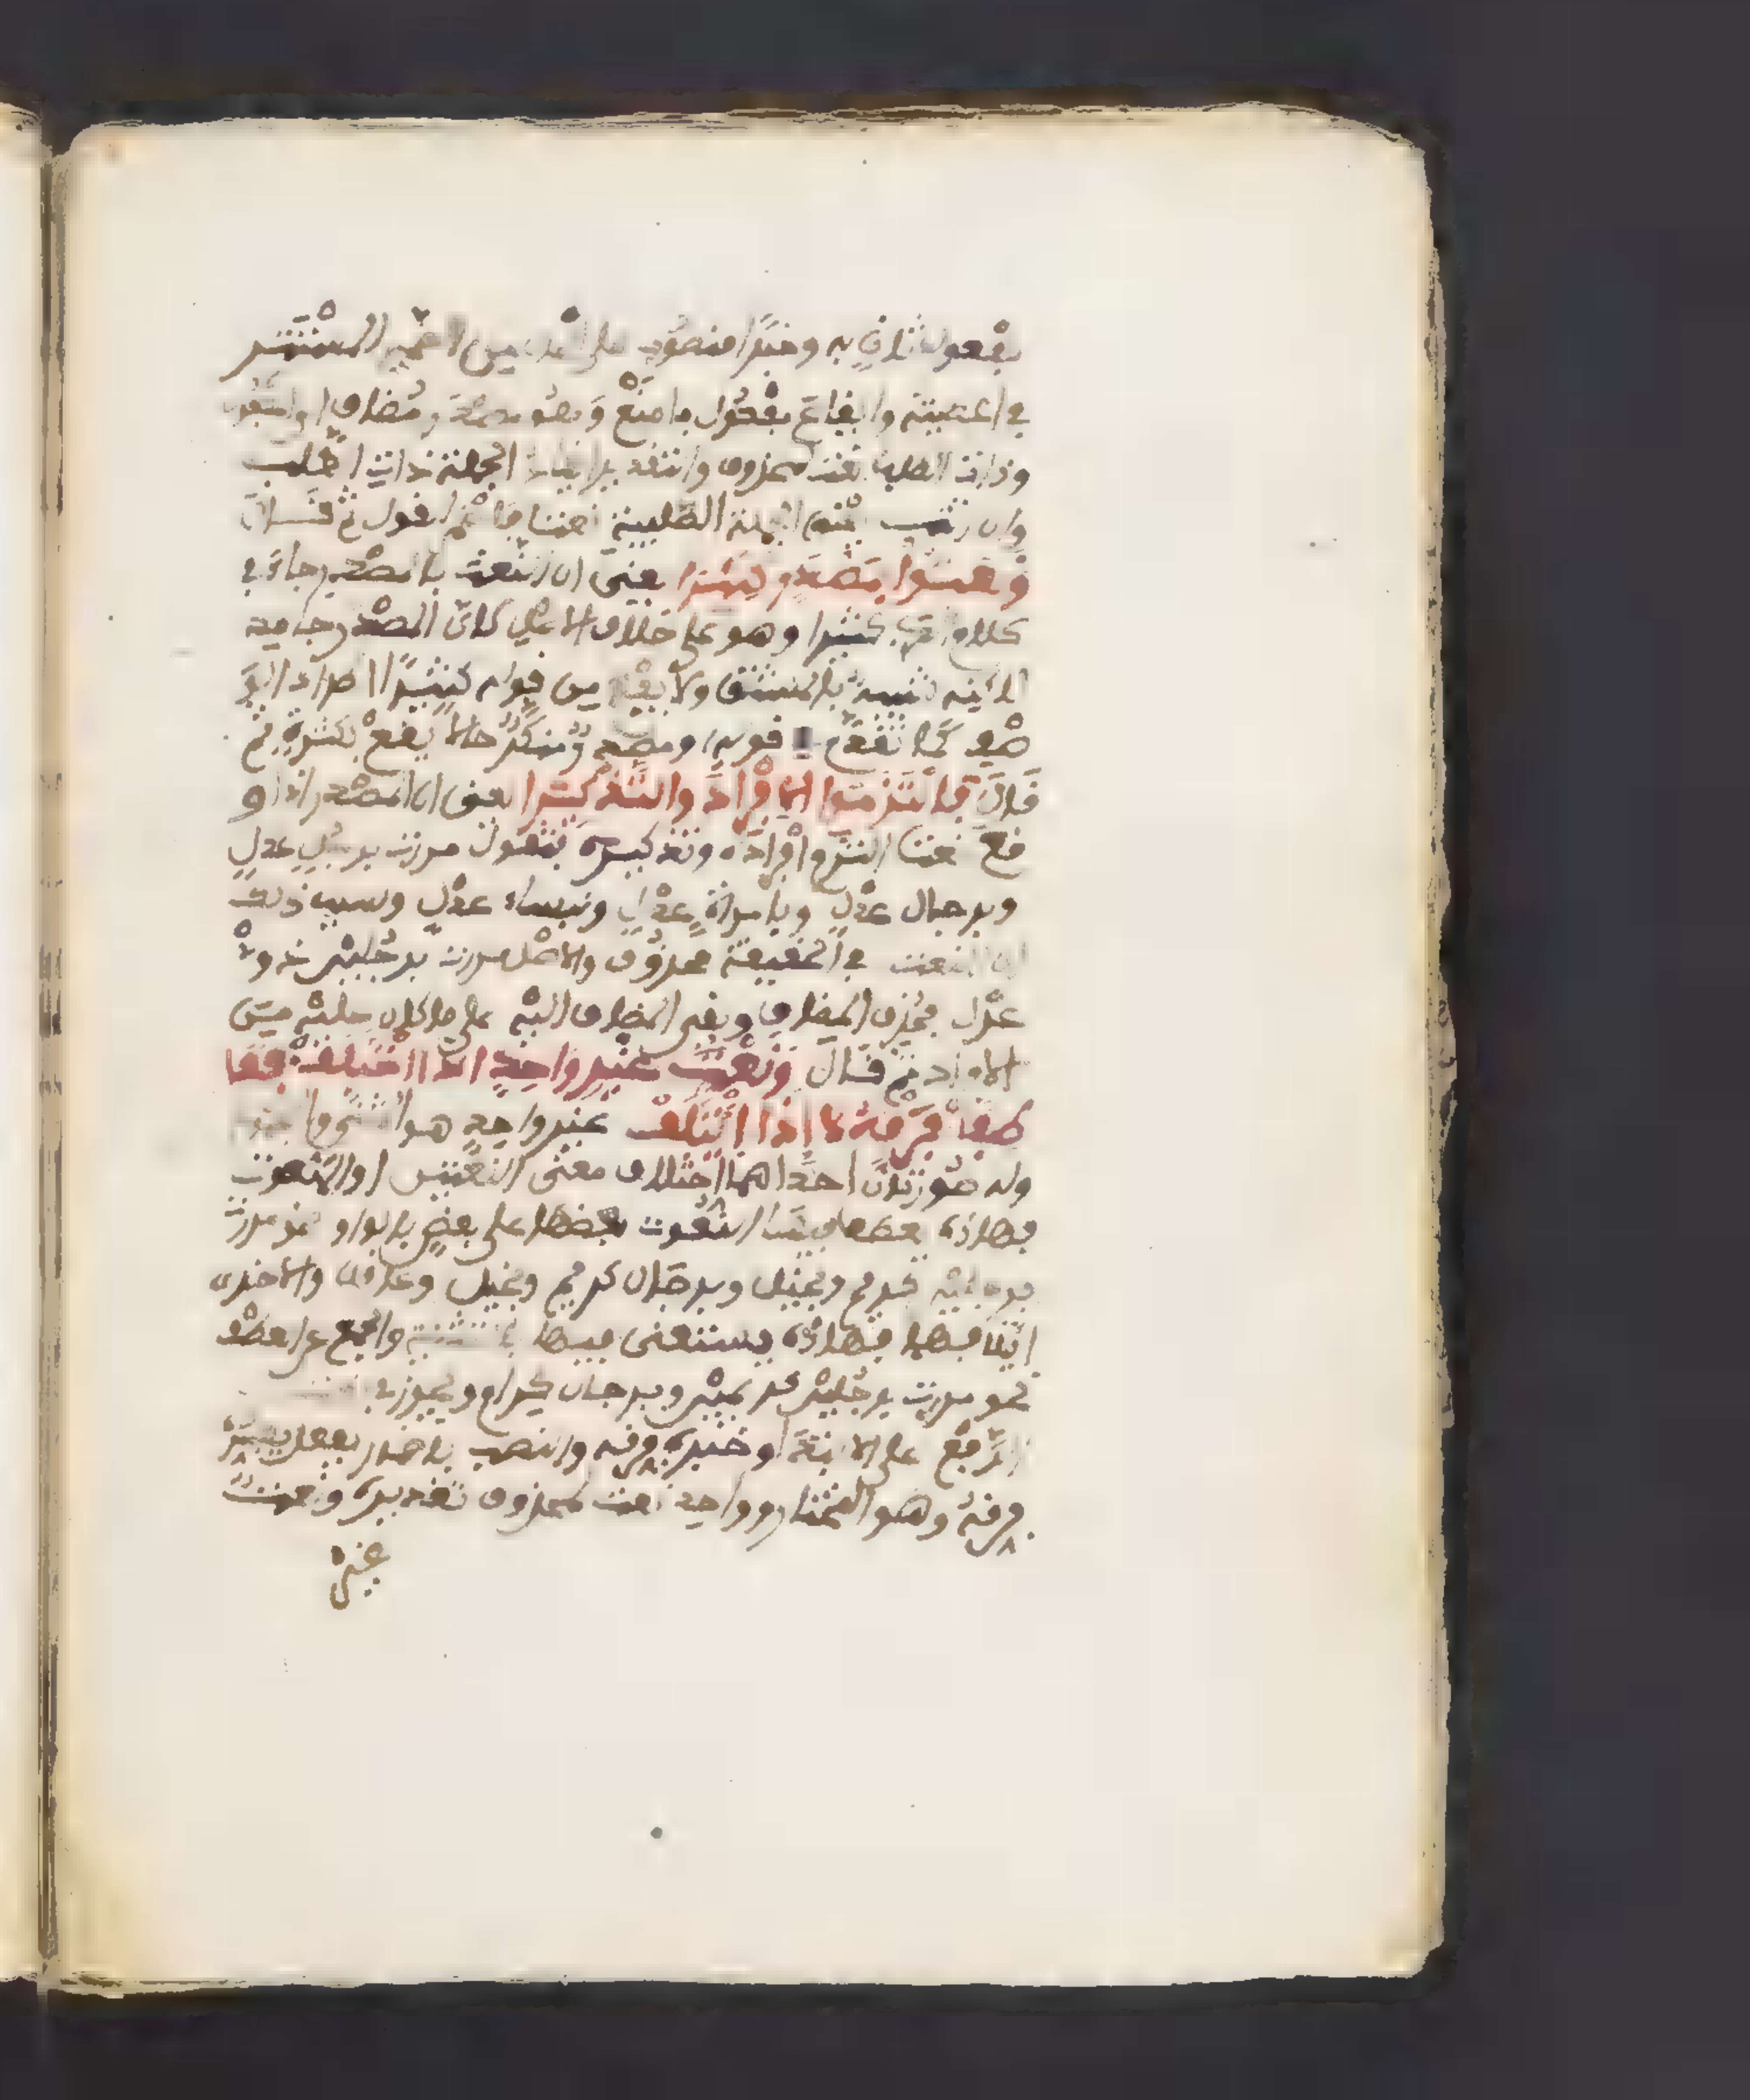 مفعول ثان به وخبرًا منصوب على الحال من الضمير المستتر
في اعطيته وايقاع مفعول بامنع وهو مصدر مضاف
وذات الطلب نعت لمحذوف والتقدير ايقاع الجملة ذات الطلب
وان اتت الجملة الطلبية نعتا فاضمر القول ثم قال
ونعتوا بمصدر كثيرا يعني ان النعت بالمصدر جاء في
كلام العرب كثيرا وهو على خلاف الاصل لان المصدر جامد
لاكنه شبيه بالمشتق ولا يفهم من قوله كثيرًا اطراد
كما تقدم في قوله ومصدر منكر حالا يقع بكثرة ثم
قال فالتزموا الافراد والتذكيرا يعني ان المصدر اذا و
قع نعتا التزم افراده وتذكيره فتقول مررت برجل عدل
وبرجال عدل وبامراة عدل ونساء عدل وسبب ذلك
ان النعت في الحقيقة محذوف والاصل مررت برجلين ذوي
عدل فحذف المضاف وبقي المضاف اليه على ما كان عليه من
الافراد ثم قال ونعت غير واحد اذا اختلف فعا
طفا فرقه لا اذا ائتلف غير واحد هو المثنى والجمع
وله صورتان احداهما اختلاف معنى النعتين او النعوت
فهاذه يعطف فيها النعوت بعضها على بعض بالواو نحو مررت
برجلين كريم وبخيل وبرجال كريم وبخيل وعاقل والاخرى
ائتلافها فهاذه يستغنى فيها بالتثنية والجمع عن العطف
نحو مررت برجلين كريمين وبرجال كرام ويجوز في
الرفع على الابتداء وخبره فرقه والنصب باضمار فعل يفسره
فرقه وهو المختار وواحد نعت لمحذوف تقديره ونعت
غير